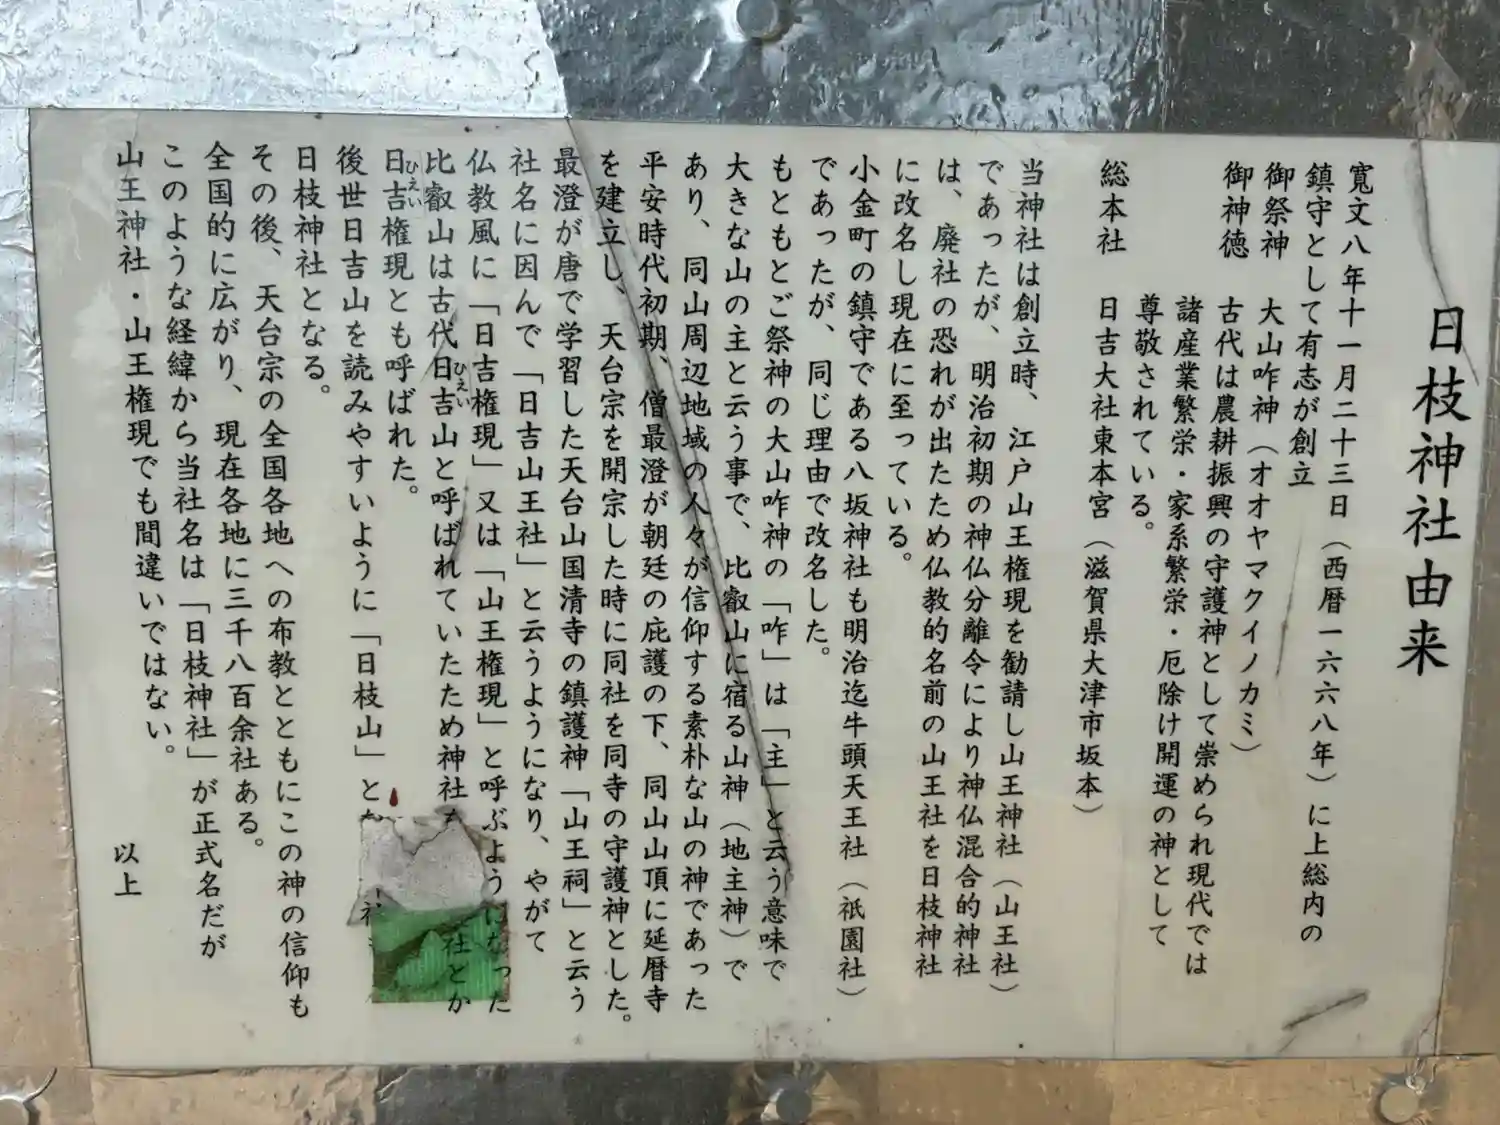 日枝神社由来
寛文八年十一月二十三日（西暦一六六八年）に上総内の
鎮守として有志が創立
御祭神　大山咋神（オオヤマクイノカミ）
御神徳　古代は農耕振興の守護神として崇められ現代では
諸産業繁栄・家系繁栄・厄除け開運の神として
尊敬されている。
総本社　日吉大社東本宮（滋賀県大津市坂本）
当神社は創立時、江戸山王権現を勧請し山王神社（山王社）
であったが、明治初期の神仏分離令により神仏混合的神社
は、廃社の恐れが出たため仏教的名前の山王社を日枝神社
に改名し現在に至っている。
小金町の鎮守である八坂神社も明治迄牛頭天王社（祇園社）
であったが、同じ理由で改名した。
もともとご祭神の大山咋神の「咋」は「主」と云う意味で
大きな山の主と云う事で、比叡山に宿る山神（地主神）で
あり、同山周辺地域の人々が信仰する素朴な山の神であった
平安時代初期、僧最澄が朝廷の庇護の下、同山山頂に延暦寺
を建立し、天台宗を開宗した時に同社を同寺の守護神とした。
最澄が唐で学習した天台山国清寺の鎮護神「山王祠」と云う
社名に因んで「日吉山王社」と云うようになり、やがて
仏教風に「日吉権現」又は「山王権現」と呼ぶようになった
比叡山は古代日吉山と呼ばれていたため神社 社とか
ひえい
日吉権現とも呼ばれた。
ひえい
後世日吉山を読みやすいように「日枝山」と
日枝神社となる。
その後、天台宗の全国各地への布教とともにこの神の信仰も
全国的に広がり、現在各地に三千八百余社ある。
このような経緯から当社名は「日枝神社」が正式名だが
山王神社・山王権現でも間違いではない。
以上